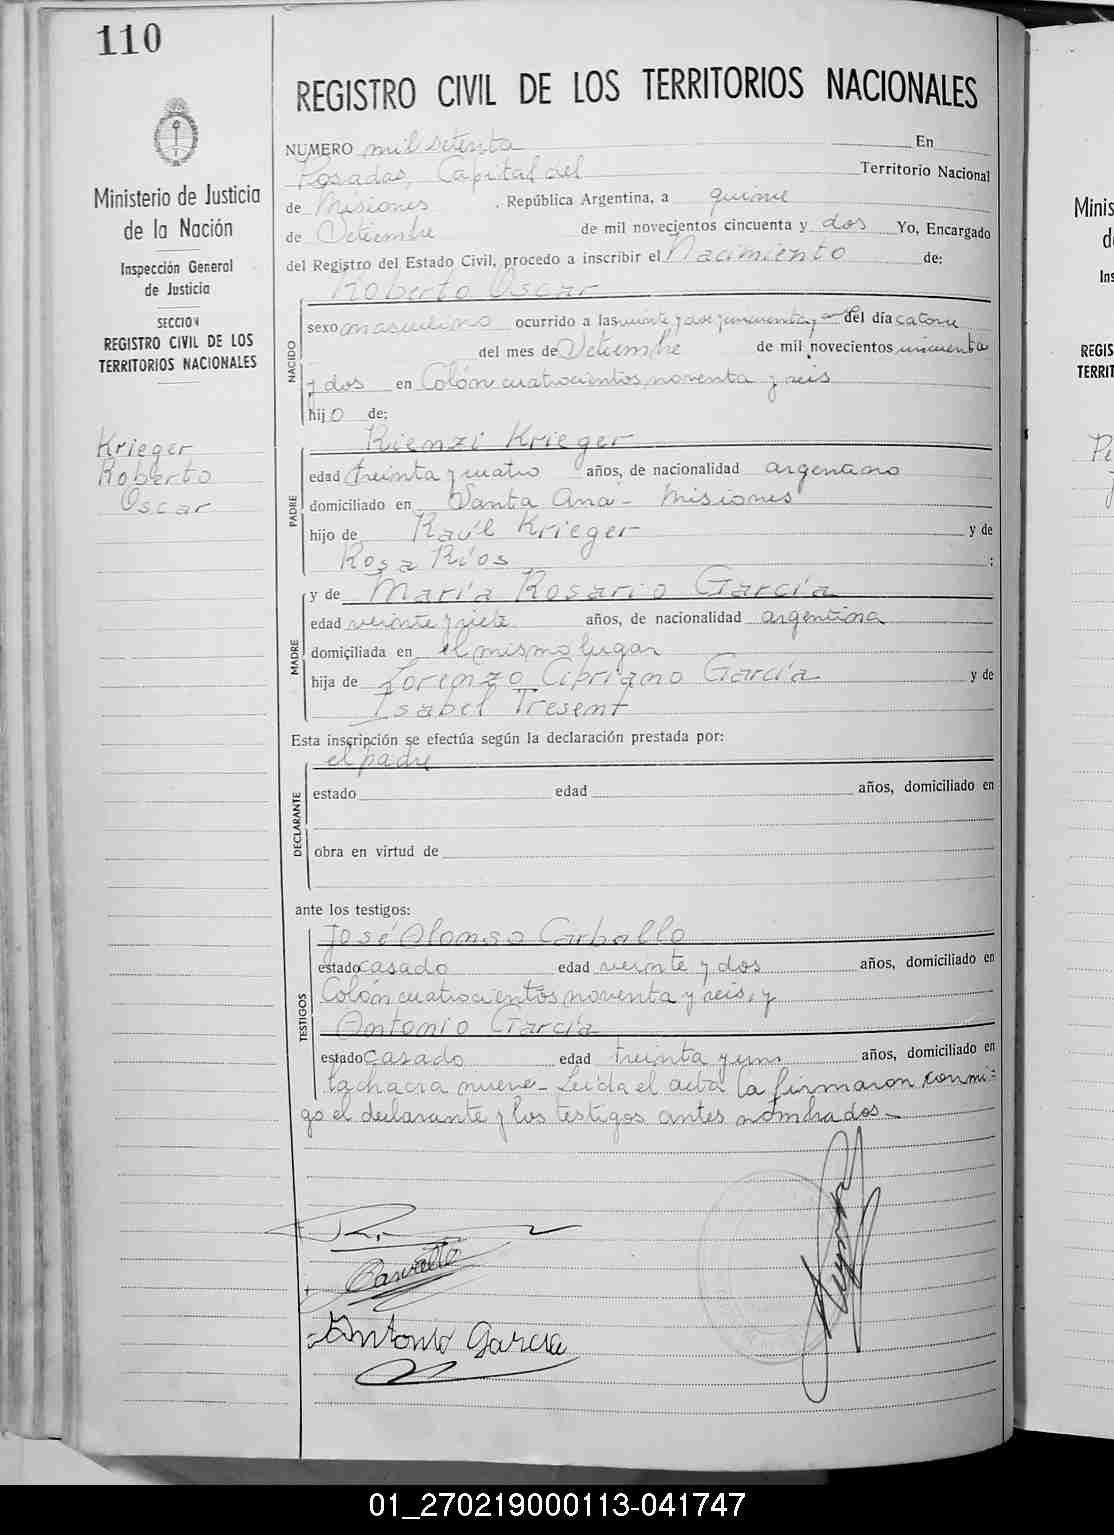 110
Ministerio de Justicia
de la Nación
Inspección General
de Justicia
SECCION
REGISTRO CIVIL DE LOS
TERRITORIOS NACIONALES
Krieger
Roberto
Oscar
REGISTRO CIVIL DE LOS TERRITORIOS NACIONALES
NUMERO mil setenta En
Posadas, Capital del Territorio Nacional
de Misiones, República Argentina, a quince
de Setiembre de mil novecientos cincuenta y dos Yo, Encargado
del Registro del Estado Civil, procedo a inscribir el Nacimiento de:
Roberto Oscar
NACIDO
sexo masculino ocurrido a las veinte y dos y cincuenta del día catorce
del mes de Setiembre de mil novecientos cincuenta
y dos en Colón cuatrocientos noventa y seis
hijo de:
Rienzi Krieger
PADRE
edad treinta y cuatro años, de nacionalidad argentino
domiciliado en Santa Ana - Misiones
hijo de Raúl Krieger y de
Rosa Ríos :
y de María Rosario García
MADRE
edad veinte y siete años, de nacionalidad argentina
domiciliada en el mismo lugar
hija de Lorenzo Cipriano García y de
Isabel Tresent
Esta inscripción se efectúa según la declaración prestada por:
el padre
DECLARANTE
estado edad años, domiciliado en
obra en virtud de
ante los testigos:
José Alonso Carballo
TESTIGOS
estado casado edad veinte y dos años, domiciliado en
Colón cuatrocientos noventa y seis, y
Antonio García
estado casado edad treinta y un años, domiciliado en
la chacra nueve - Leída el acta la firmaron conmi-
go el declarante y los testigos antes nombrados -
Carvallo
Antonio Garcia
Minis
d
Ins
REGIS
TERRIT
Pe
01_270219000113-041747